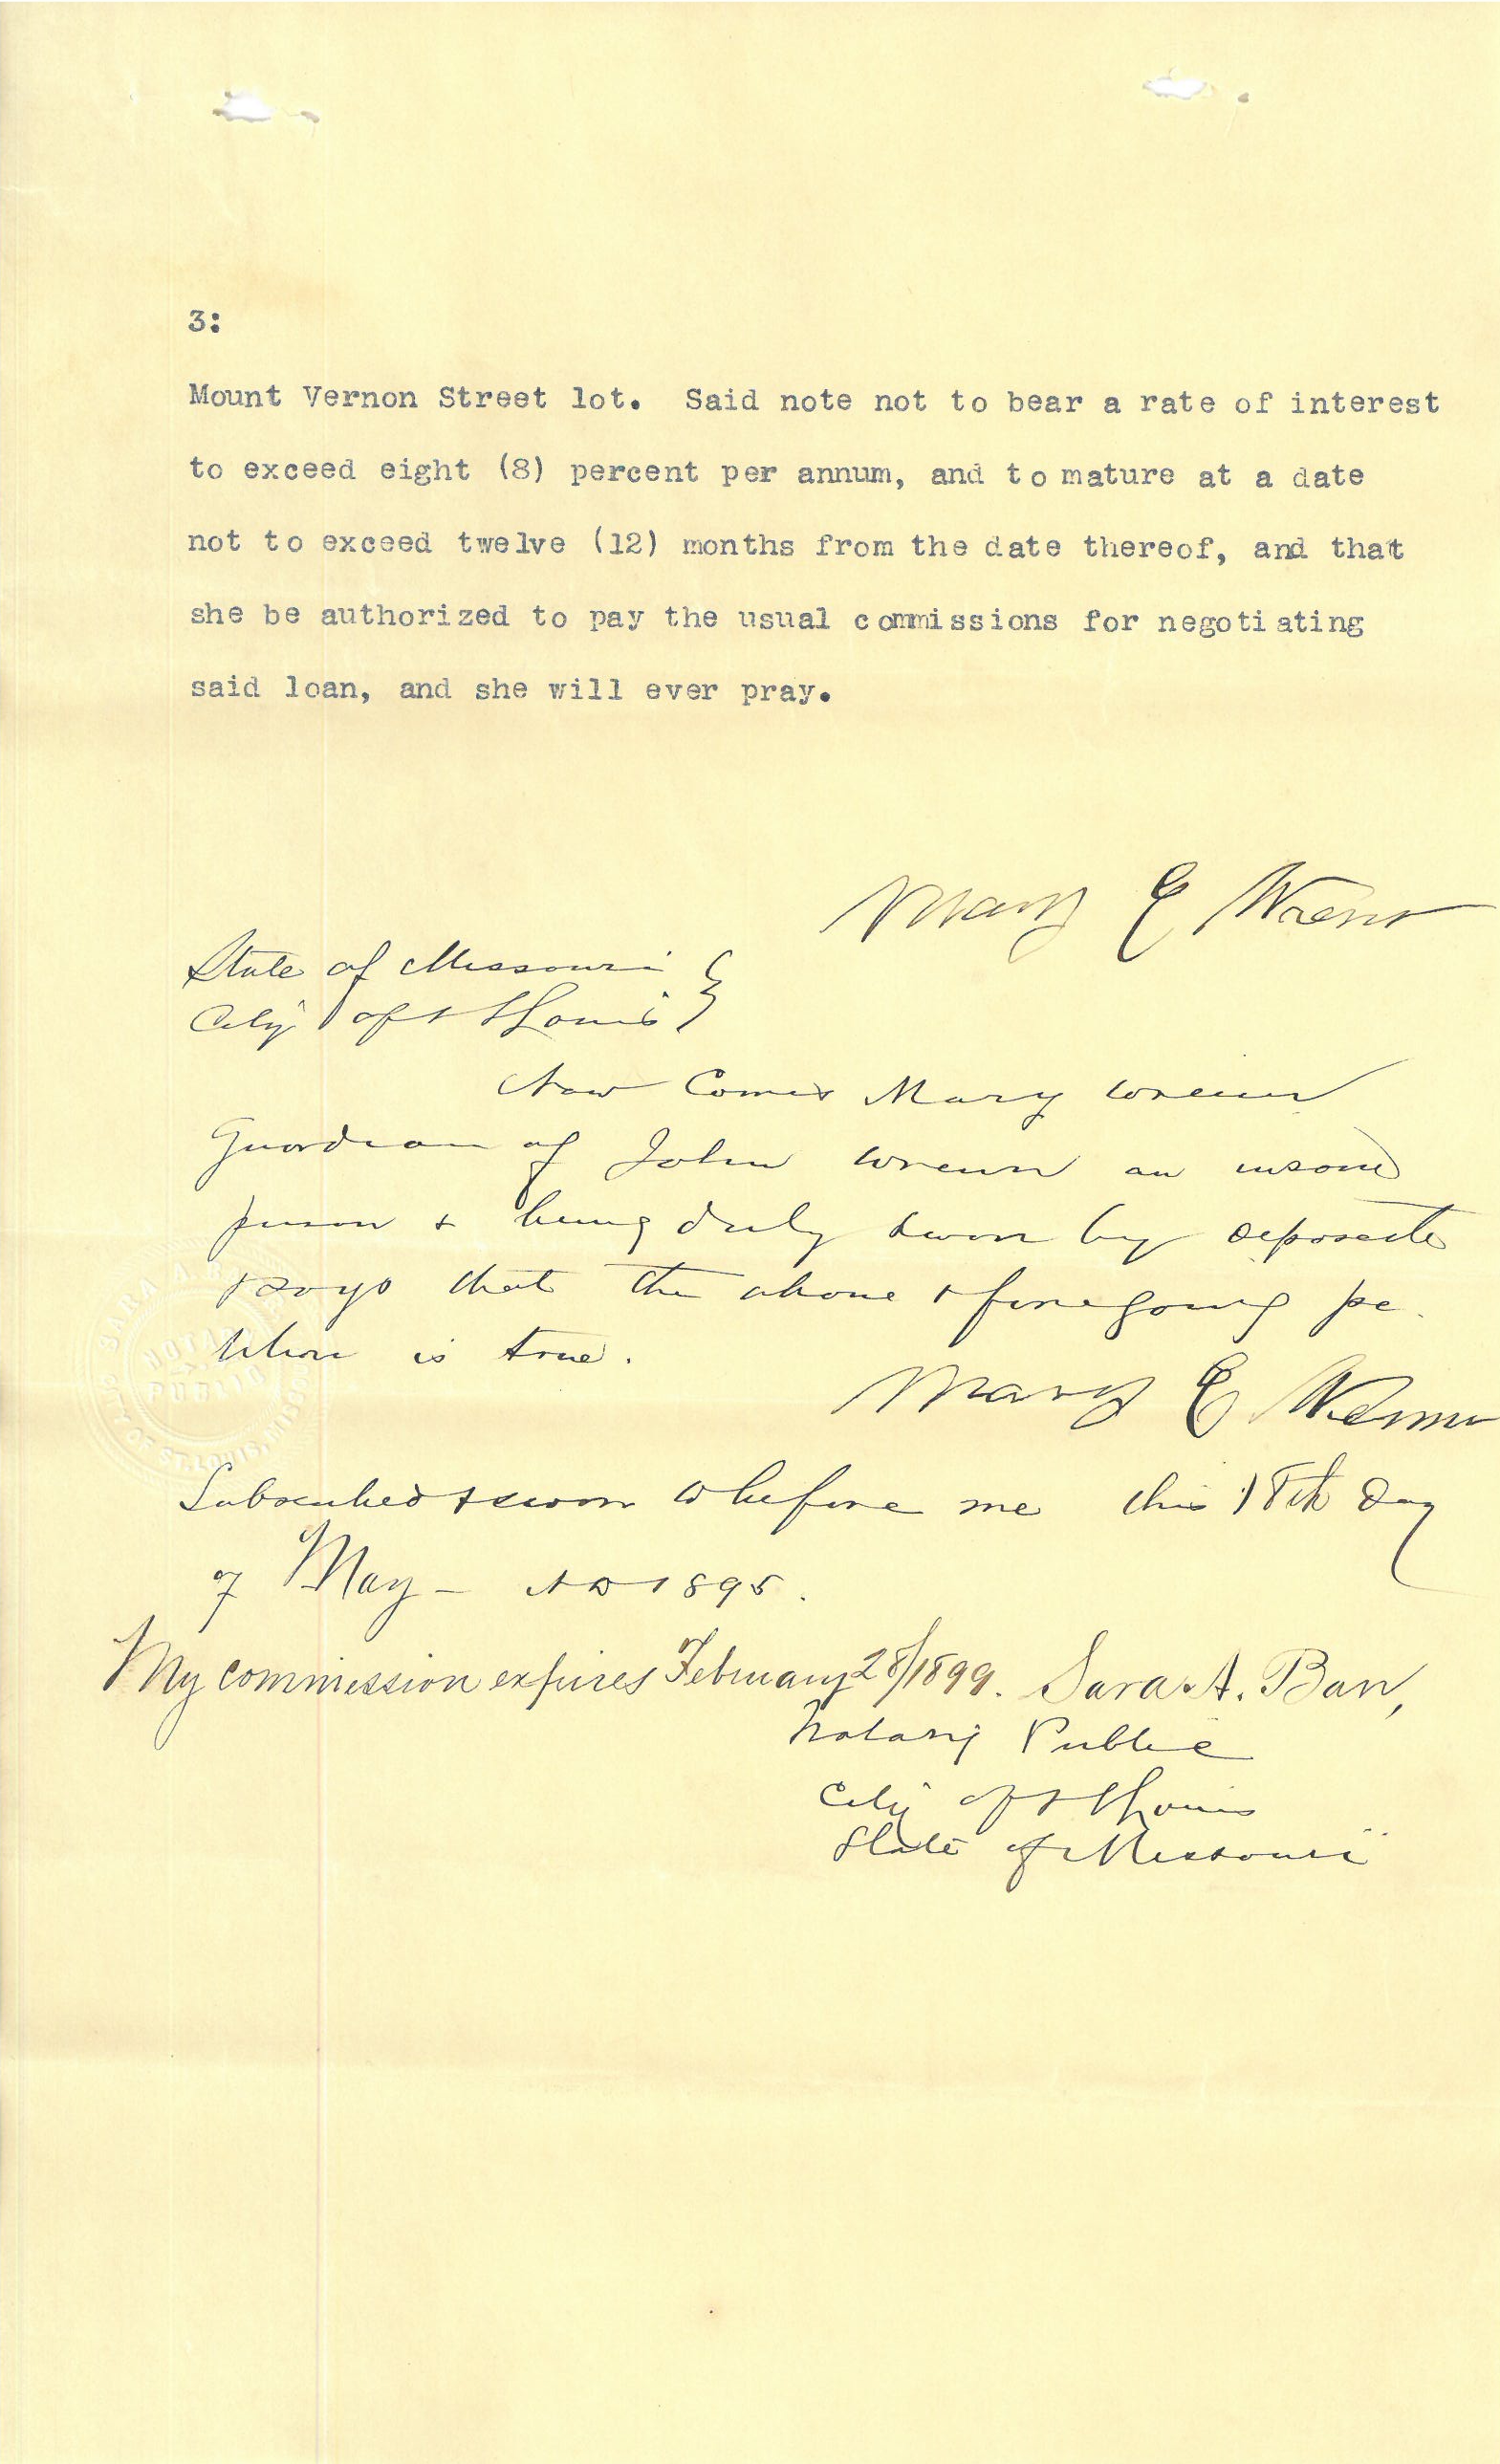 3:
Mount Vernon Street lot. Said note not to bear a rate of interest
to exceed eight (8) percent per annum, and to mature at a date
not to exceed twelve (12) months from the date thereof, and that
she be authorized to pay the usual commissions for negotiating
said loan, and she will ever pray.
Mary E Wrenn
State of Missouri }
City of St Louis }
Now Comes Mary Wrenn
Guardian of John Wrenn an insane
person & being duly sworn by
& says that the above & foregoing pe
tition is true.
Mary E Wrenn
Subscribed & sworn to before me this 18th Day
of May – AD 1895.
My commission expires February 28/1899. Sara A.
Notary Public
City of St Louis
State of Missouri
SARA A.
NOTARY
PUBLIC
CITY OF ST. LOUIS, MISSOURI